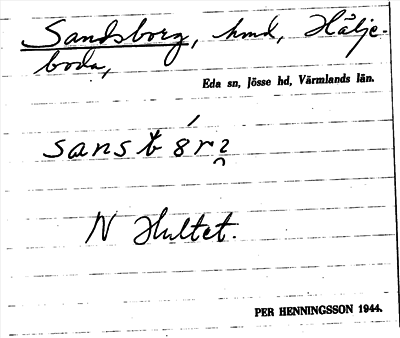 Sandsborg, hmd, Hälje-
boda,
Eda sn, Jösse hd, Värmlands län.
N Hultet.
PER HENNINGSSON 1944.